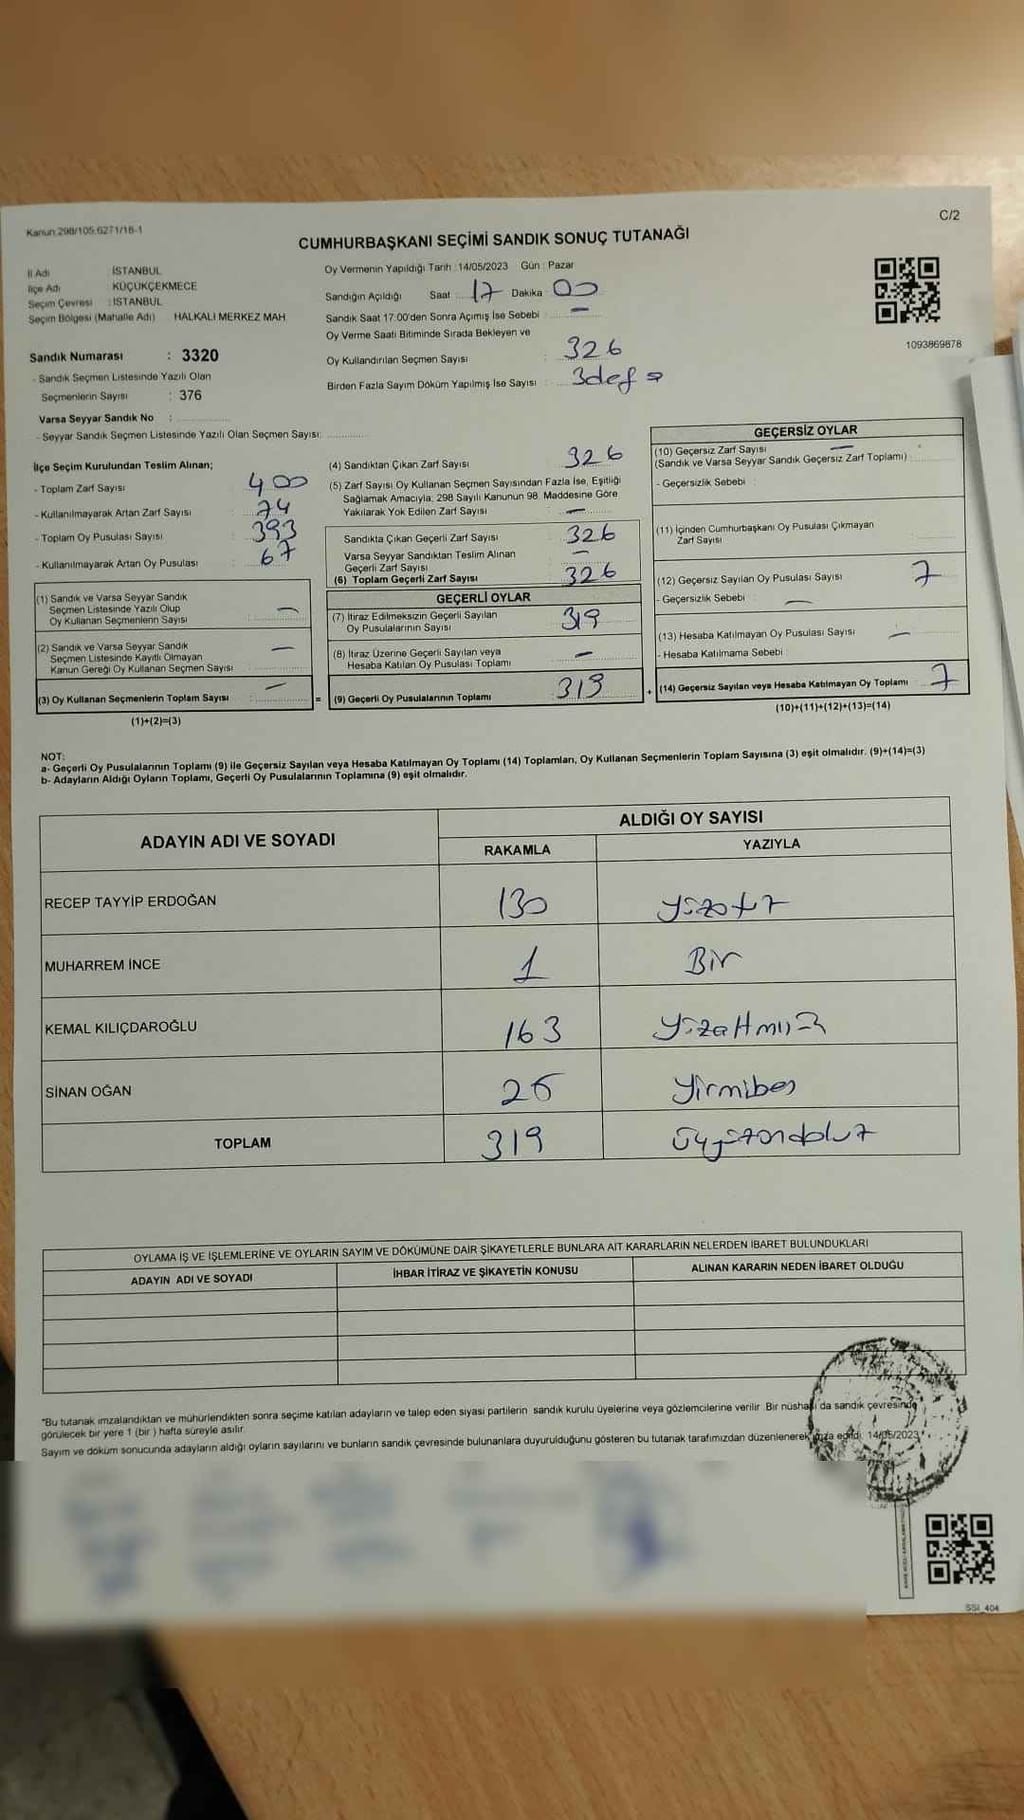 Kanun:298/105,6271/18-1
C/2
CUMHURBAŞKANI SEÇİMİ SANDIK SONUÇ TUTANAĞI
İl Adı : İSTANBUL
İlçe Adı : KÜÇÜKÇEKMECE
Seçim Çevresi : İSTANBUL
Seçim Bölgesi (Mahalle Adı) HALKALI MERKEZ MAH.
Oy Vermenin Yapıldığı Tarih :14/05/2023 Gün : Pazar
Sandığın Açıldığı Saat 17 Dakika 00
Sandık Saat 17:00'den Sonra Açımış İse Sebebi : —
Oy Verme Saati Bitiminde Sırada Bekleyen ve
Oy Kullandırılan Seçmen Sayısı : 326
Birden Fazla Sayım Döküm Yapılmış İse Sayısı : 3def
1093869878
Sandık Numarası : 3320
- Sandık Seçmen Listesinde Yazılı Olan
Seçmenlerin Sayısı : 376
Varsa Seyyar Sandık No :
- Seyyar Sandık Seçmen Listesinde Yazılı Olan Seçmen Sayısı:
İlçe Seçim Kurulundan Teslim Alınan;
- Toplam Zarf Sayısı 400
- Kullanılmayarak Artan Zarf Sayısı 74
- Toplam Oy Pusulası Sayısı 393
- Kullanılmayarak Artan Oy Pusulası 67
(1) Sandık ve Varsa Seyyar Sandık
Seçmen Listesinde Yazılı Olup
Oy Kullanan Seçmenlerin Sayısı —
(2) Sandık ve Varsa Seyyar Sandık
Seçmen Listesinde Kayıtlı Olmayan
Kanun Gereği Oy Kullanan Seçmen Sayısı —
(3) Oy Kullanan Seçmenlerin Toplam Sayısı : —
(1)+(2)=(3)
(4) Sandıktan Çıkan Zarf Sayısı 326
(5) Zarf Sayısı Oy Kullanan Seçmen Sayısından Fazla İse, Eşitliği
Sağlamak Amacıyla; 298 Sayılı Kanunun 98. Maddesine Göre
Yakılarak Yok Edilen Zarf Sayısı —
Sandıkta Çıkan Geçerli Zarf Sayısı 326
Varsa Seyyar Sandıktan Teslim Alınan
Geçerli Zarf Sayısı —
(6) Toplam Geçerli Zarf Sayısı 326
GEÇERLİ OYLAR
(7) İtiraz Edilmeksizin Geçerli Sayılan
Oy Pusulalarının Sayısı 319
(8) İtiraz Üzerine Geçerli Sayılan veya
Hesaba Katılan Oy Pusulası Toplamı —
= (9) Geçerli Oy Pusulalarının Toplamı 319
GEÇERSİZ OYLAR
(10) Geçersiz Zarf Sayısı —
(Sandık ve Varsa Seyyar Sandık Geçersiz Zarf Toplamı) :
- Geçersizlik Sebebi :
(11) İçinden Cumhurbaşkanı Oy Pusulası Çıkmayan
Zarf Sayısı
(12) Geçersiz Sayılan Oy Pusulası Sayısı 7
- Geçersizlik Sebebi : —
(13) Hesaba Katılmayan Oy Pusulası Sayısı —
- Hesaba Katılmama Sebebi :
+ (14) Geçersiz Sayılan veya Hesaba Katılmayan Oy Toplamı 7
(10)+(11)+(12)+(13)=(14)
NOT:
a- Geçerli Oy Pusulalarının Toplamı (9) ile Geçersiz Sayılan veya Hesaba Katılmayan Oy Toplamı (14) Toplamları, Oy Kullanan Seçmenlerin Toplam Sayısına (3) eşit olmalıdır. (9)+(14)=(3)
b- Adayların Aldığı Oyların Toplamı, Geçerli Oy Pusulalarının Toplamına (9) eşit olmalıdır.
ADAYIN ADI VE SOYADI
ALDIĞI OY SAYISI
RAKAMLA YAZIYLA
RECEP TAYYİP ERDOĞAN 130 yüzotuz
MUHARREM İNCE 1 Bir
KEMAL KILIÇDAROĞLU 163
SİNAN OĞAN 25 yirmibeş
TOPLAM 319
OYLAMA İŞ VE İŞLEMLERİNE VE OYLARIN SAYIM VE DÖKÜMÜNE DAİR ŞİKAYETLERLE BUNLARA AİT KARARLARIN NELERDEN İBARET BULUNDUKLARI
ADAYIN ADI VE SOYADI
İHBAR İTİRAZ VE ŞİKAYETİN KONUSU
ALINAN KARARIN NEDEN İBARET OLDUĞU
*Bu tutanak imzalandıktan ve mühürlendikten sonra seçime katılan adayların ve talep eden siyasi partilerin sandık kurulu üyelerine veya gözlemcilerine verilir. Bir nüshası da sandık çevresinde
görülecek bir yere 1 (bir) hafta süreyle asılır.
Sayım ve döküm sonucunda adayların aldığı oyların sayılarını ve bunların sandık çevresinde bulunanlara duyurulduğunu gösteren bu tutanak tarafımızdan düzenlenerek imza edildi. 14/05/2023
SSİ_404